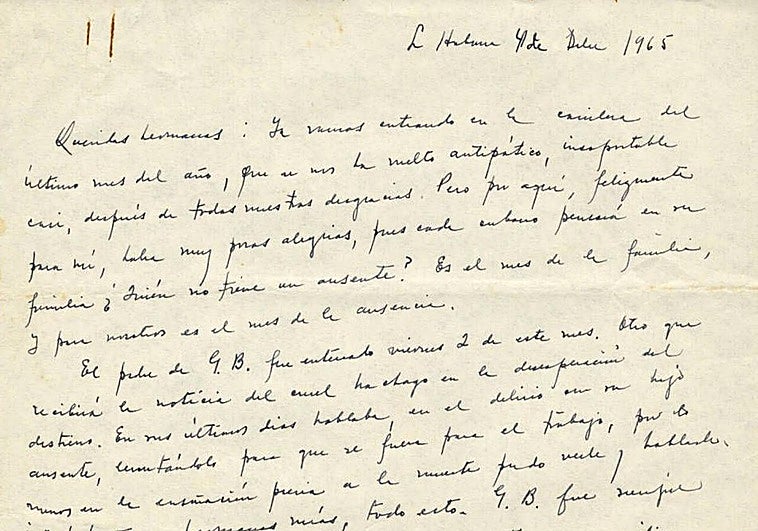 L Habana 4 de Dibre 1965
Queridas hermanas: Ya vamos entrando en la carrilera del
último mes del año, que se nos ha vuelto antipático, insoportable
casi, después de todas nuestras desgracias. Pero por aquí, felizmente
para mí, habrá muy pocas alegrías, pues cada cubano pensará en su
familia ¿Quién no tiene un ausente? Es el mes de la familia,
y para nosotros es el mes de la ausencia.
El padre de G. B. fue enterrado viernes 2 de este mes. Otro que
recibirá la noticia del cruel hachazo en la desesperación del
destierro. En sus últimos días hablaba, en el delirio con su hijo
ausente, levantándolo para que se fuera para el trabajo, por lo
menos en la ensoñación previa a la muerte pudo verle y hablarle.
hermanas mías, todo esto. G. B. fue siempre